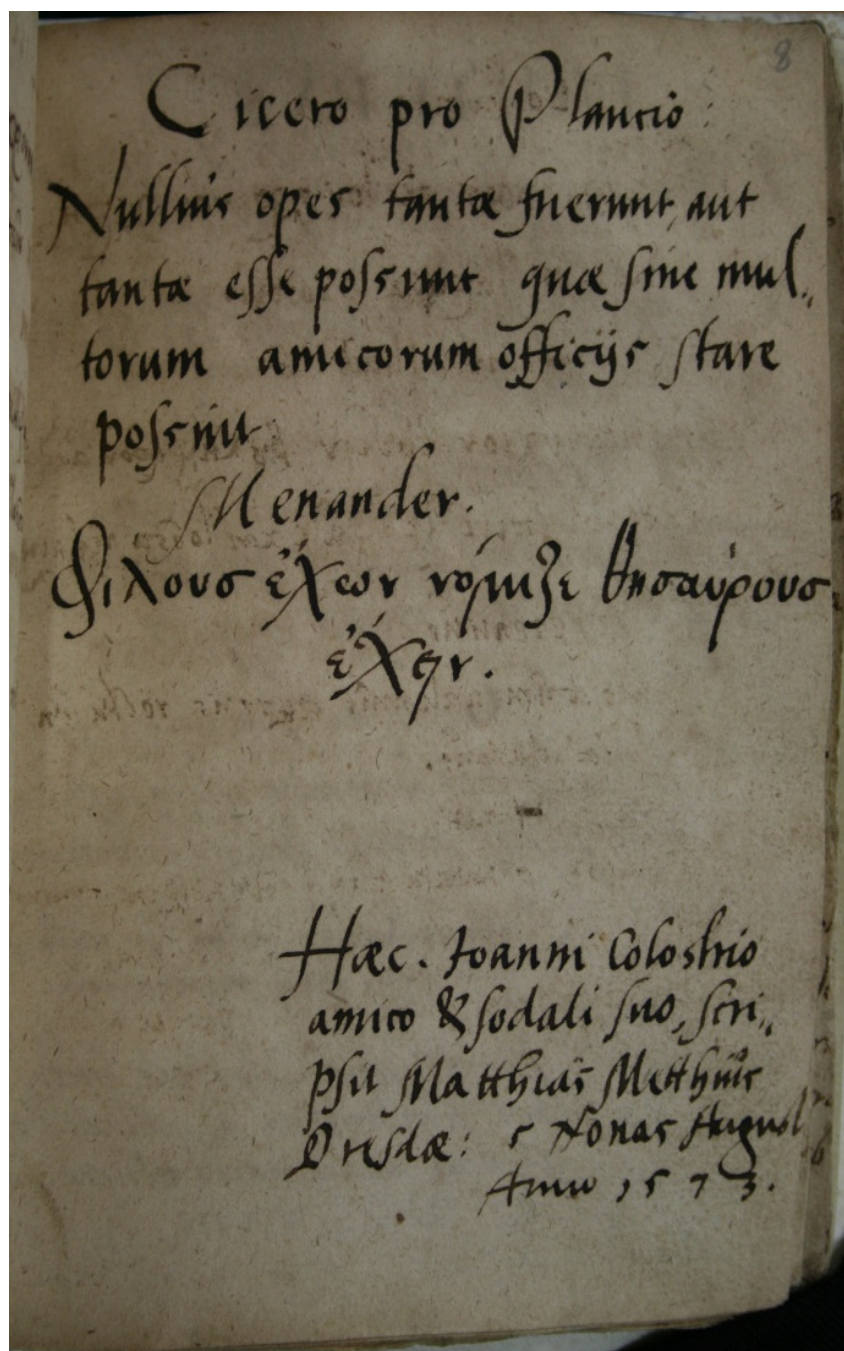 8
Cicero pro Plancio:
Nullius opes tantæ fuerunt, aut
tantæ esse possunt quæ sine mul„
torum amicorum officijs stare
possint
Menander.
Φιλους ἔχων νόμιζε θησαύρους
ἔχειν.
Hæc. Joanni Colostrio
amico & sodali suo, scri„
psit Matthias Metthius
Dresdæ: 5 Nonas August
Anno 1573.